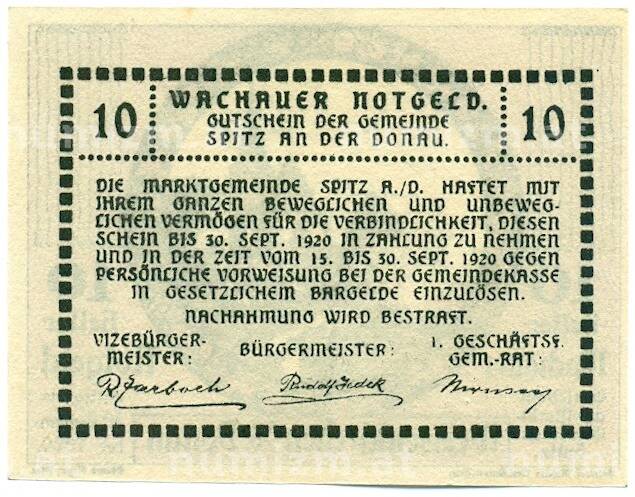 10 WACHAUER NOTGELD. 10
GUTSCHEIN DER GEMEINDE
SPITZ AN DER DONAU.
DIE MARKTGEMEINDE SPITZ A./D. HAFTET MIT
IHREM GANZEN BEWEGLICHEN UND UNBEWEG-
LICHEN VERMÖGEN FÜR DIE VERBINDLICHKEIT, DIESEN
SCHEIN BIS 30. SEPT. 1920 IN ZAHLUNG ZU NEHMEN
UND IN DER ZEIT VOM 15. BIS 30. SEPT. 1920 GEGEN
PERSÖNLICHE VORWEISUNG BEI DER GEMEINDEKASSE
IN GESETZLICHEM BARGELDE EINZULÖSEN.
NACHAHMUNG WIRD BESTRAFT.
VIZEBÜRGER-
MEISTER:
BÜRGERMEISTER:
1. GESCHÄFTSF.
GEM.-RAT:
numism.at